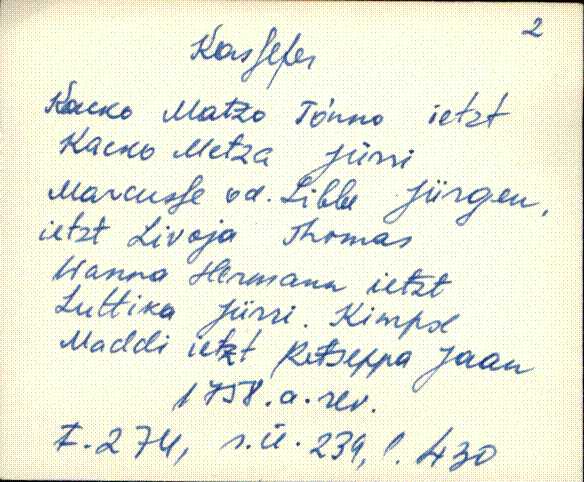 2
Kassefer
Kacko Matzo Tönno ietzt
Kacko Metza Jürri
Marcusse od. Libbe Jürgen,
ietzt Livoja Thomas
Wanna Hermann ietzt
Luttika Jürri. Kimpe
Maddi ietzt Retseppa Jaan
1758. a. rev.
F. 274, s.ü. 239, l. 430